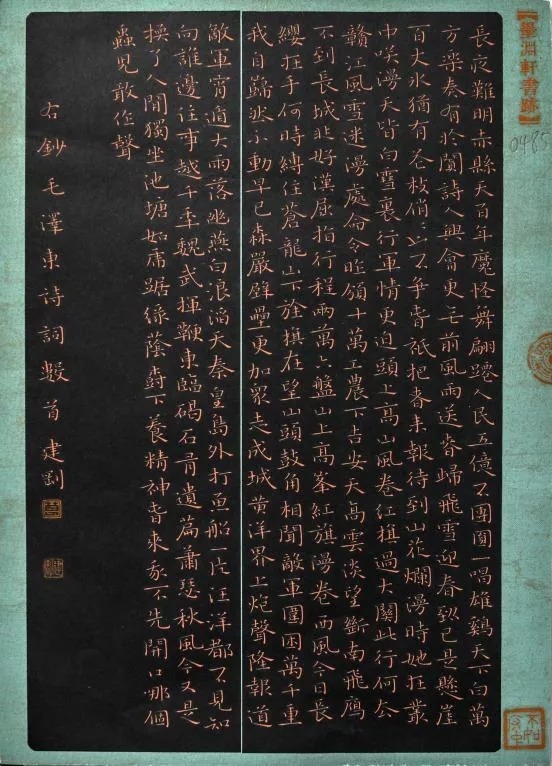 【墨淵軒書跡】
0485
長夜難明赤縣天百年魔怪舞翩躚人民五億不團圓一唱雄鷄天下白萬
方樂奏有於闐詩人興會更无前風雨送春歸飛雪迎春到已是懸崖
百丈冰猶有花枝俏俏也不爭春祇把春來報待到山花爛漫時她在叢
中咲漫天皆白雪裏行軍情更迫頭上高山風卷紅旗過大關此行何去
贛江風雪迷漫處命令昨頒十萬工農下吉安天高雲淡望斷南飛雁
不到長城非好漢屈指行程兩萬六盤山上高峯紅旗漫卷西風今日長
纓在手何時縛住蒼龍山下旌旗在望山頭鼓角相聞敵軍圍困萬千重
我自巋然不動早已森嚴壁壘更加衆志成城黃洋界上炮聲隆報道
敵軍宵遁大雨落幽燕白浪滔天秦皇島外打魚船一片汪洋都不見知
向誰邊往事越千年魏武揮鞭東臨碣石有遺篇蕭瑟秋風今又是
換了人間獨坐池塘如虎踞綠蔭樹下養精神春來我不先開口哪個
蟲兒敢作聲
右鈔毛澤東詩詞數首建